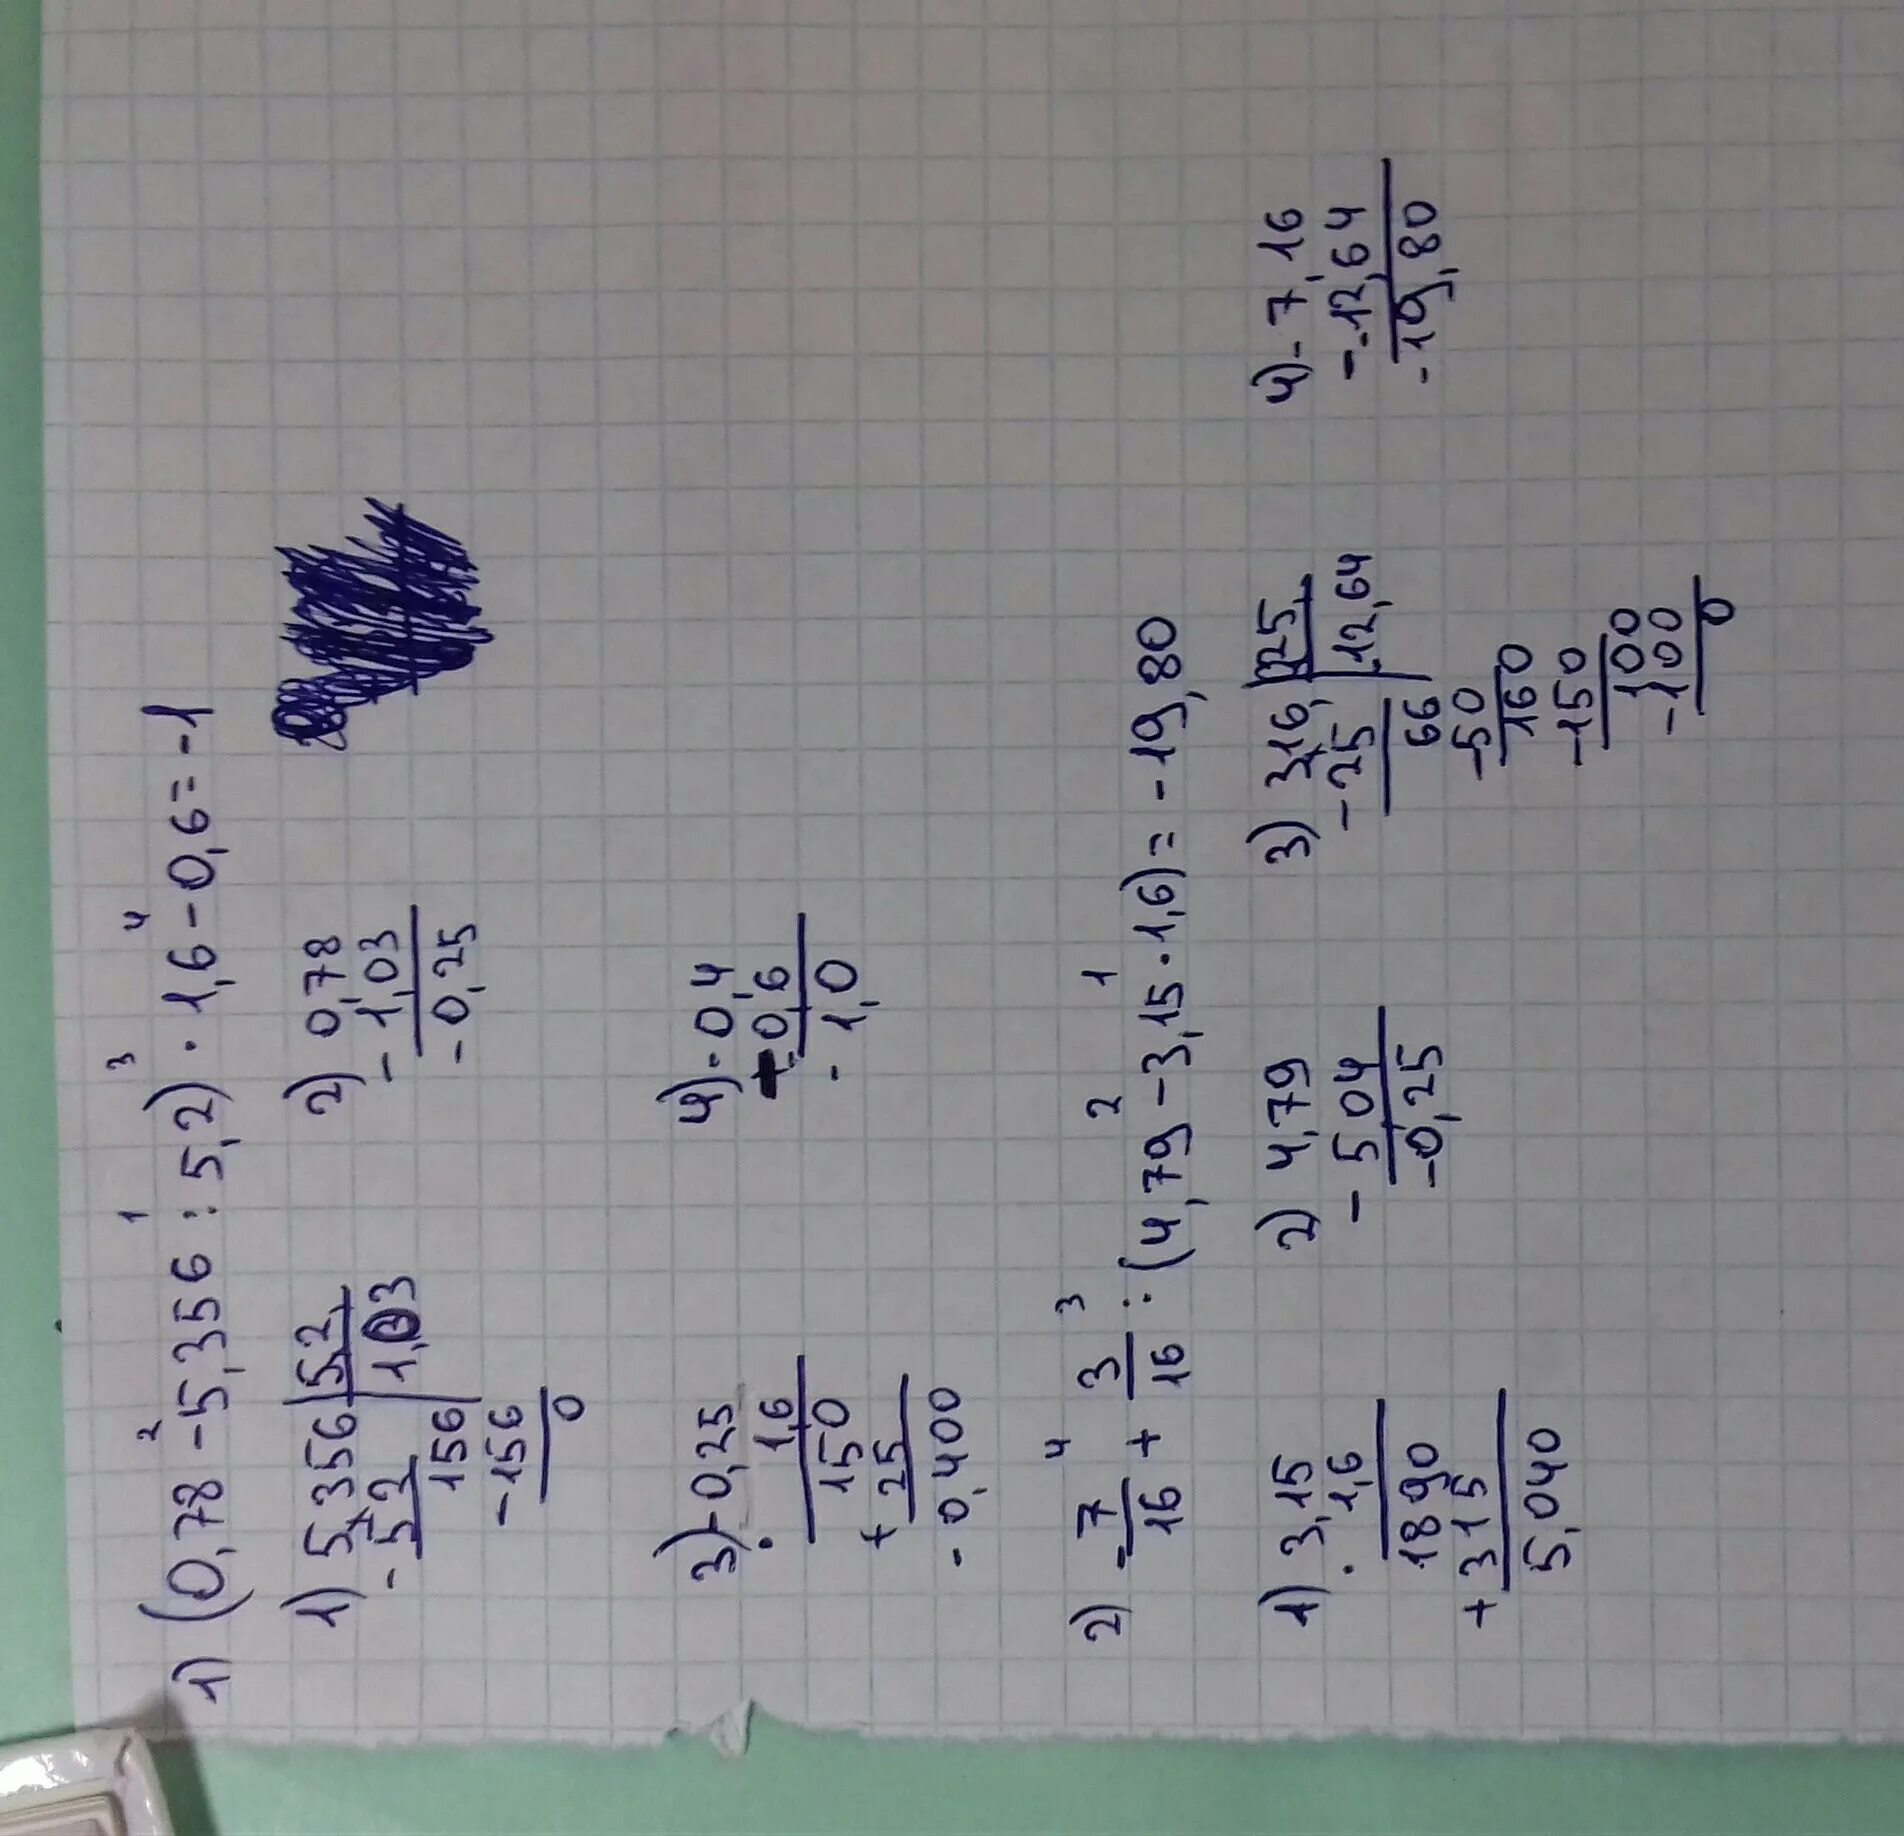 1) (0,78 - 5,356 : 5,2) · 1,6 - 0,6 = -1
2 1 3 4
1) 5,356 | 5,2
- 52 | 1,03
156
-156
0
2) 0,78
- 1,03
-0,25
3) -0,25
· 1,6
150
+ 25
- 0,400
4) -0,4
+-0,6
- 1,0
2) -7/16 + 3/16 : (4,79 - 3,15 · 1,6) = -19,80
4 3 2 1
1) 3,15
· 1,6
1890
+ 315
5,040
2) 4,79
- 5,04
-0,25
3) 3,16, | 0,25,
- 25 | 12,64
66
-50
160
-150
100
-100
0
4) - 7,16
- -12,64
- 19,80